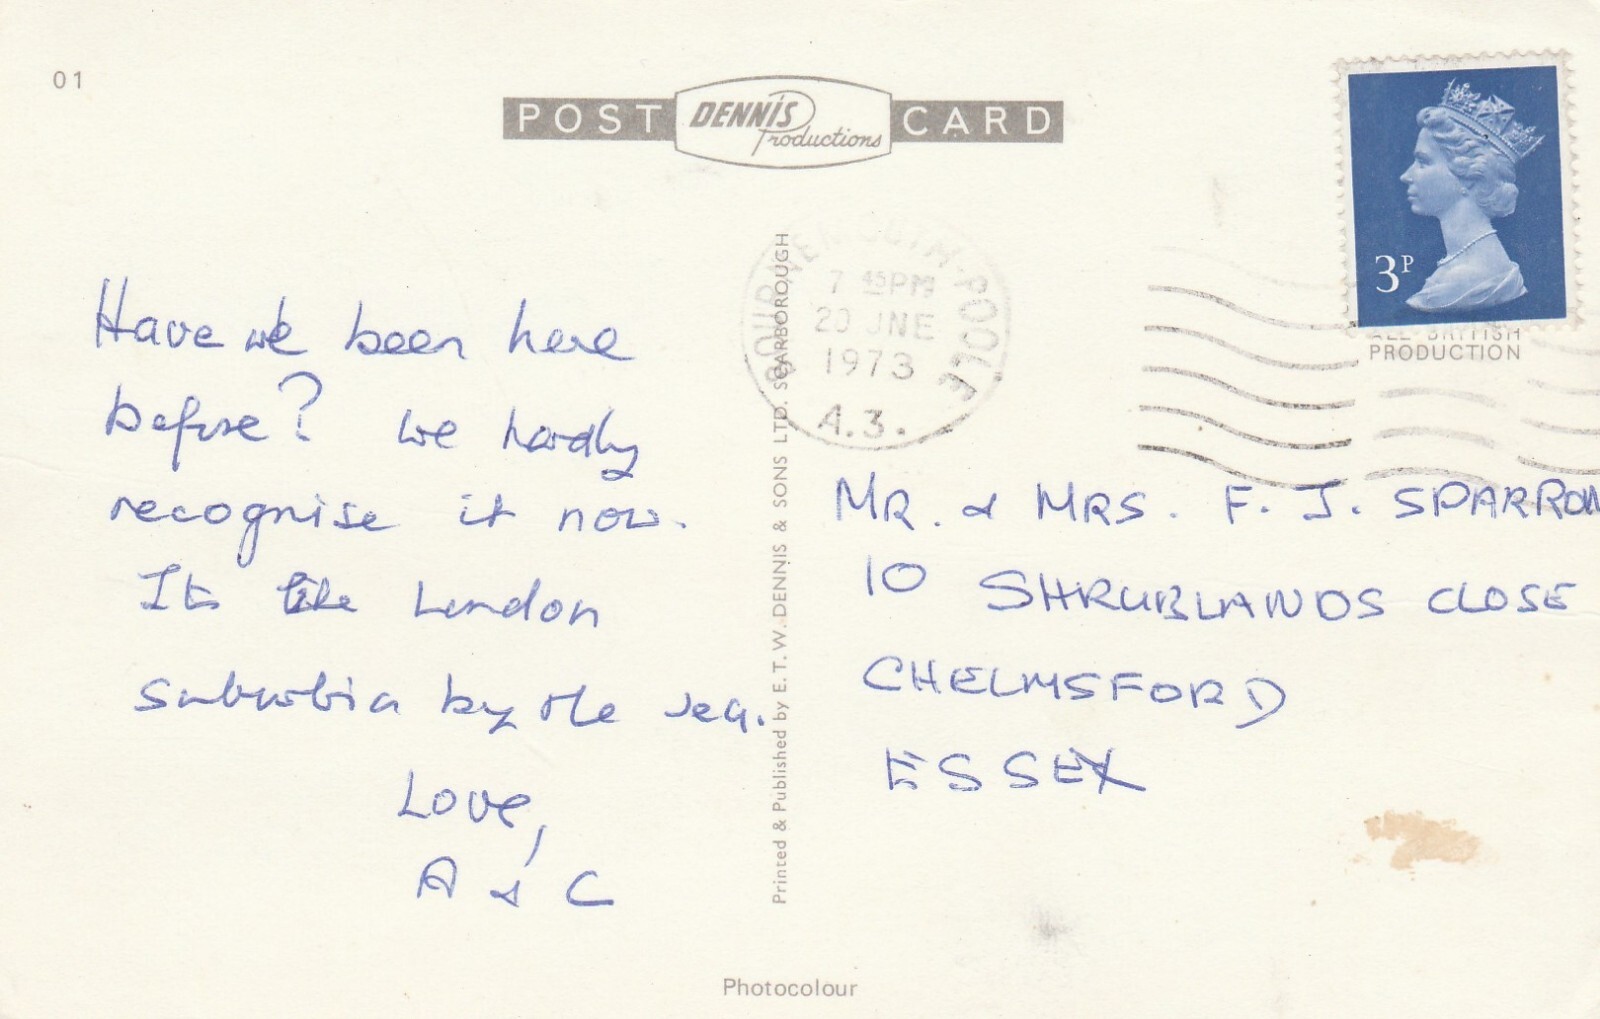 01
POST DENNIS Productions CARD
3P
BOURNEMOUTH-POOLE
7 45PM
20 JNE
1973
A.3.
ALL BRITISH
PRODUCTION
Have we been here
before? We hardly
recognise it now.
Its like London
suburbia by the sea.
Love,
A & C
Printed & Published by E. T. W. DENNIS & SONS LTD. SCARBOROUGH
MR. & MRS. F. J. SPARROW
10 SHRUBLANDS CLOSE
CHELMSFORD
ESSEX
Photocolour